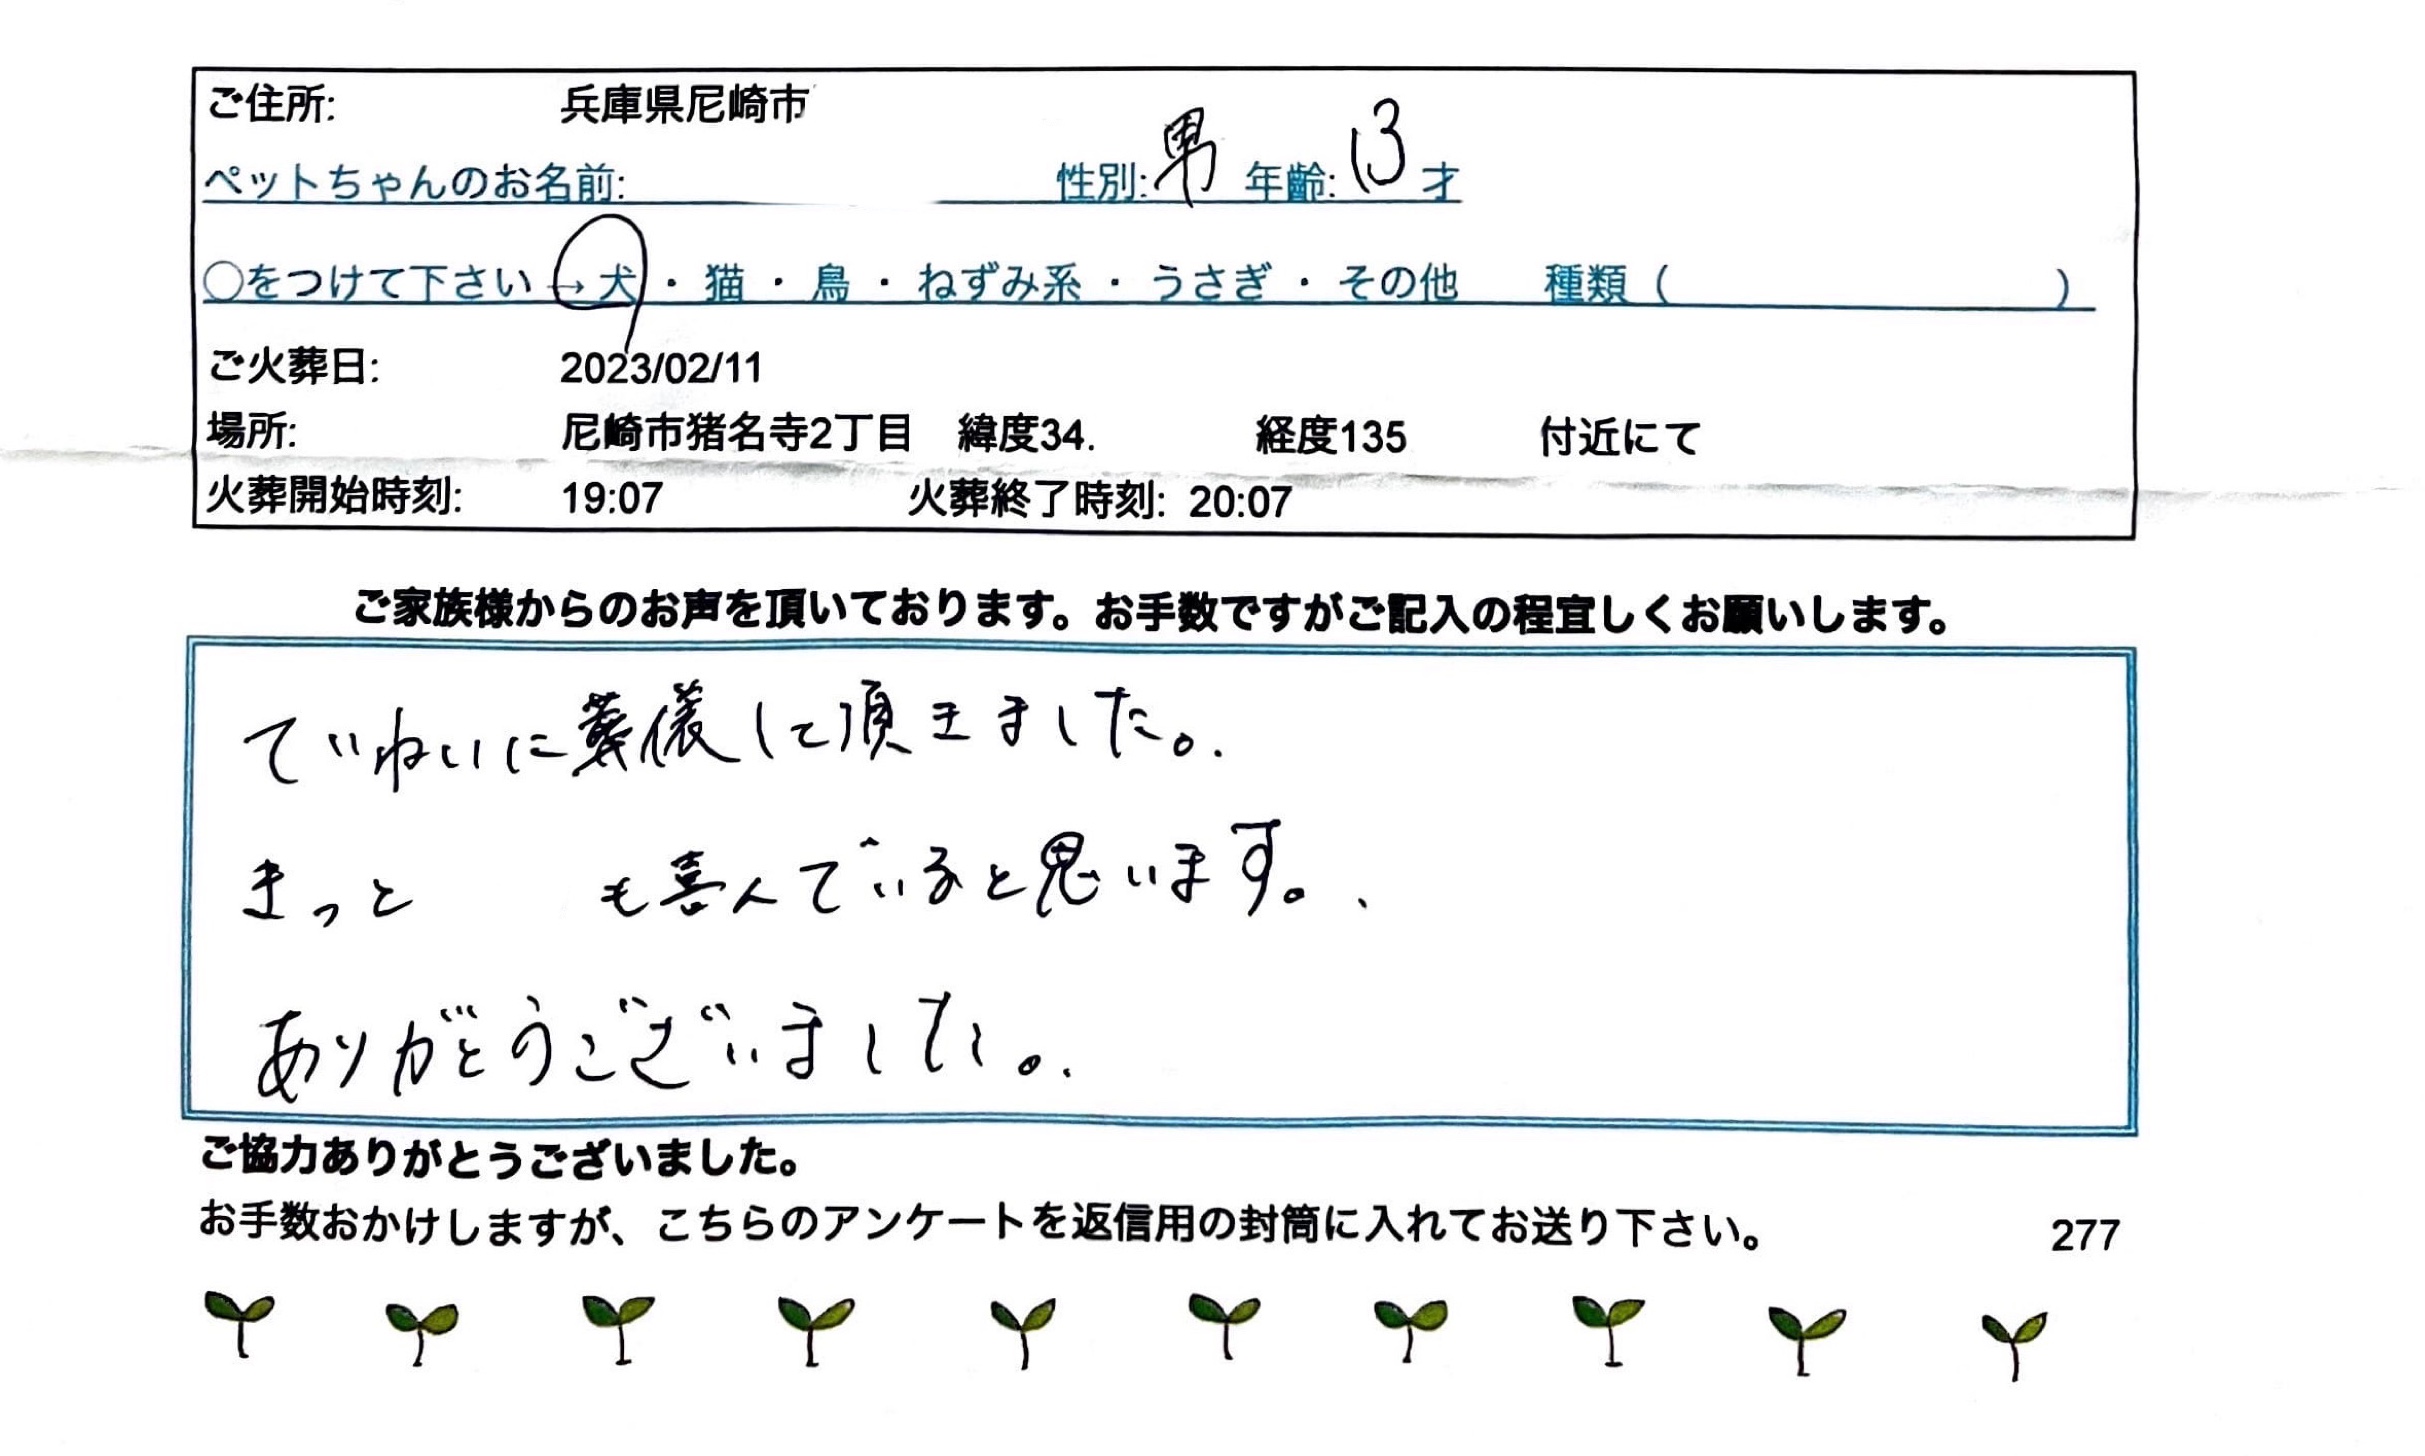 ご住所: 兵庫県尼崎市
ペットちゃんのお名前: 性別:男 年齢:13才
○をつけて下さい→犬・猫・鳥・ねずみ系・うさぎ・その他 種類( )
ご火葬日: 2023/02/11
場所: 尼崎市猪名寺2丁目 緯度34. 経度135 付近にて
火葬開始時刻: 19:07 火葬終了時刻: 20:07
ご家族様からのお声を頂いております。お手数ですがご記入の程宜しくお願いします。
ていねいに葬儀して頂きました。
きっと も喜んでいると思います。
ありがとうございました。
ご協力ありがとうございました。
お手数おかけしますが、こちらのアンケートを返信用の封筒に入れてお送り下さい。 277